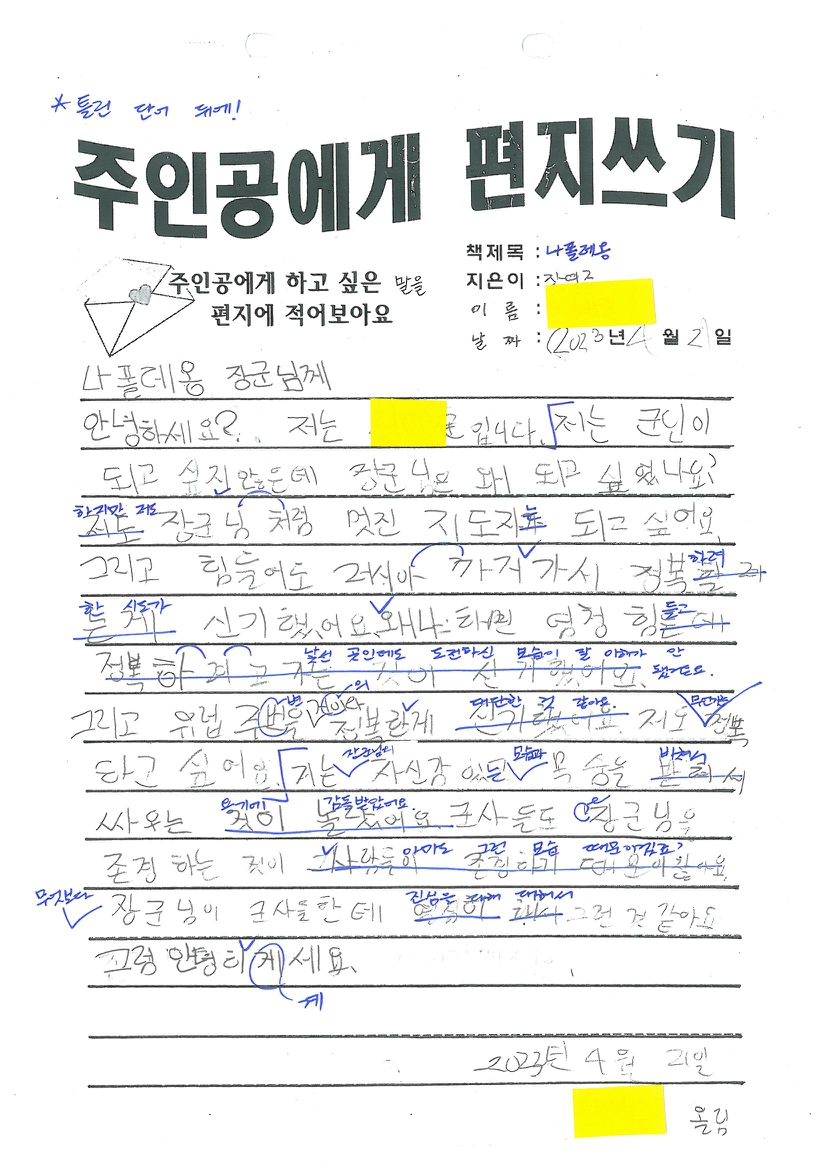 * 틀린 단어 뒤에!
주인공에게 편지쓰기
책제목 : 나폴레옹
주인공에게 하고 싶은 말을
지은이 :
편지에 적어보아요
이 름 :
날 짜 : (2023년 4월 21일
나폴레옹 장군님께
안녕하세요?.. 저는 입니다. 저는 군인이
되고 싶지 않은데 장군님은 왜 되고 싶었나요?
하지만 저도
저도 장군님 처럼 멋진 지도자는 되고 싶어요.
하려
그리고 힘들어도 러시아 까지 가서 정복
한 시도가 들고
신기했어요. 왜냐하면 엄청 힘
낯선 곳인데도 도전하신 모습이 잘 이해가 안
됐거든요.
정복하려고 것이 신기했어요.
변 의 대단한 것 같아요. 무언가를
그리고 유럽 주번을 정복한게 신기했어요. 저도 정복
장군님의 모습과 바쳐
하고 싶어요. 저는 자신감 있는 목숨을
용기에 감동받았어요.
싸우는 것이 놀라웠어요. 군사들도 장군님을
아마도 그런 모습 때문이겠죠?
존경하는 것이 존경하기 때문이 같아요.
무엇보다 진심을 다해 대해서
장군님이 군사들한테 그런 것 같아요
그럼 안녕히 게세요.
계
2023년 4월 21일
올림